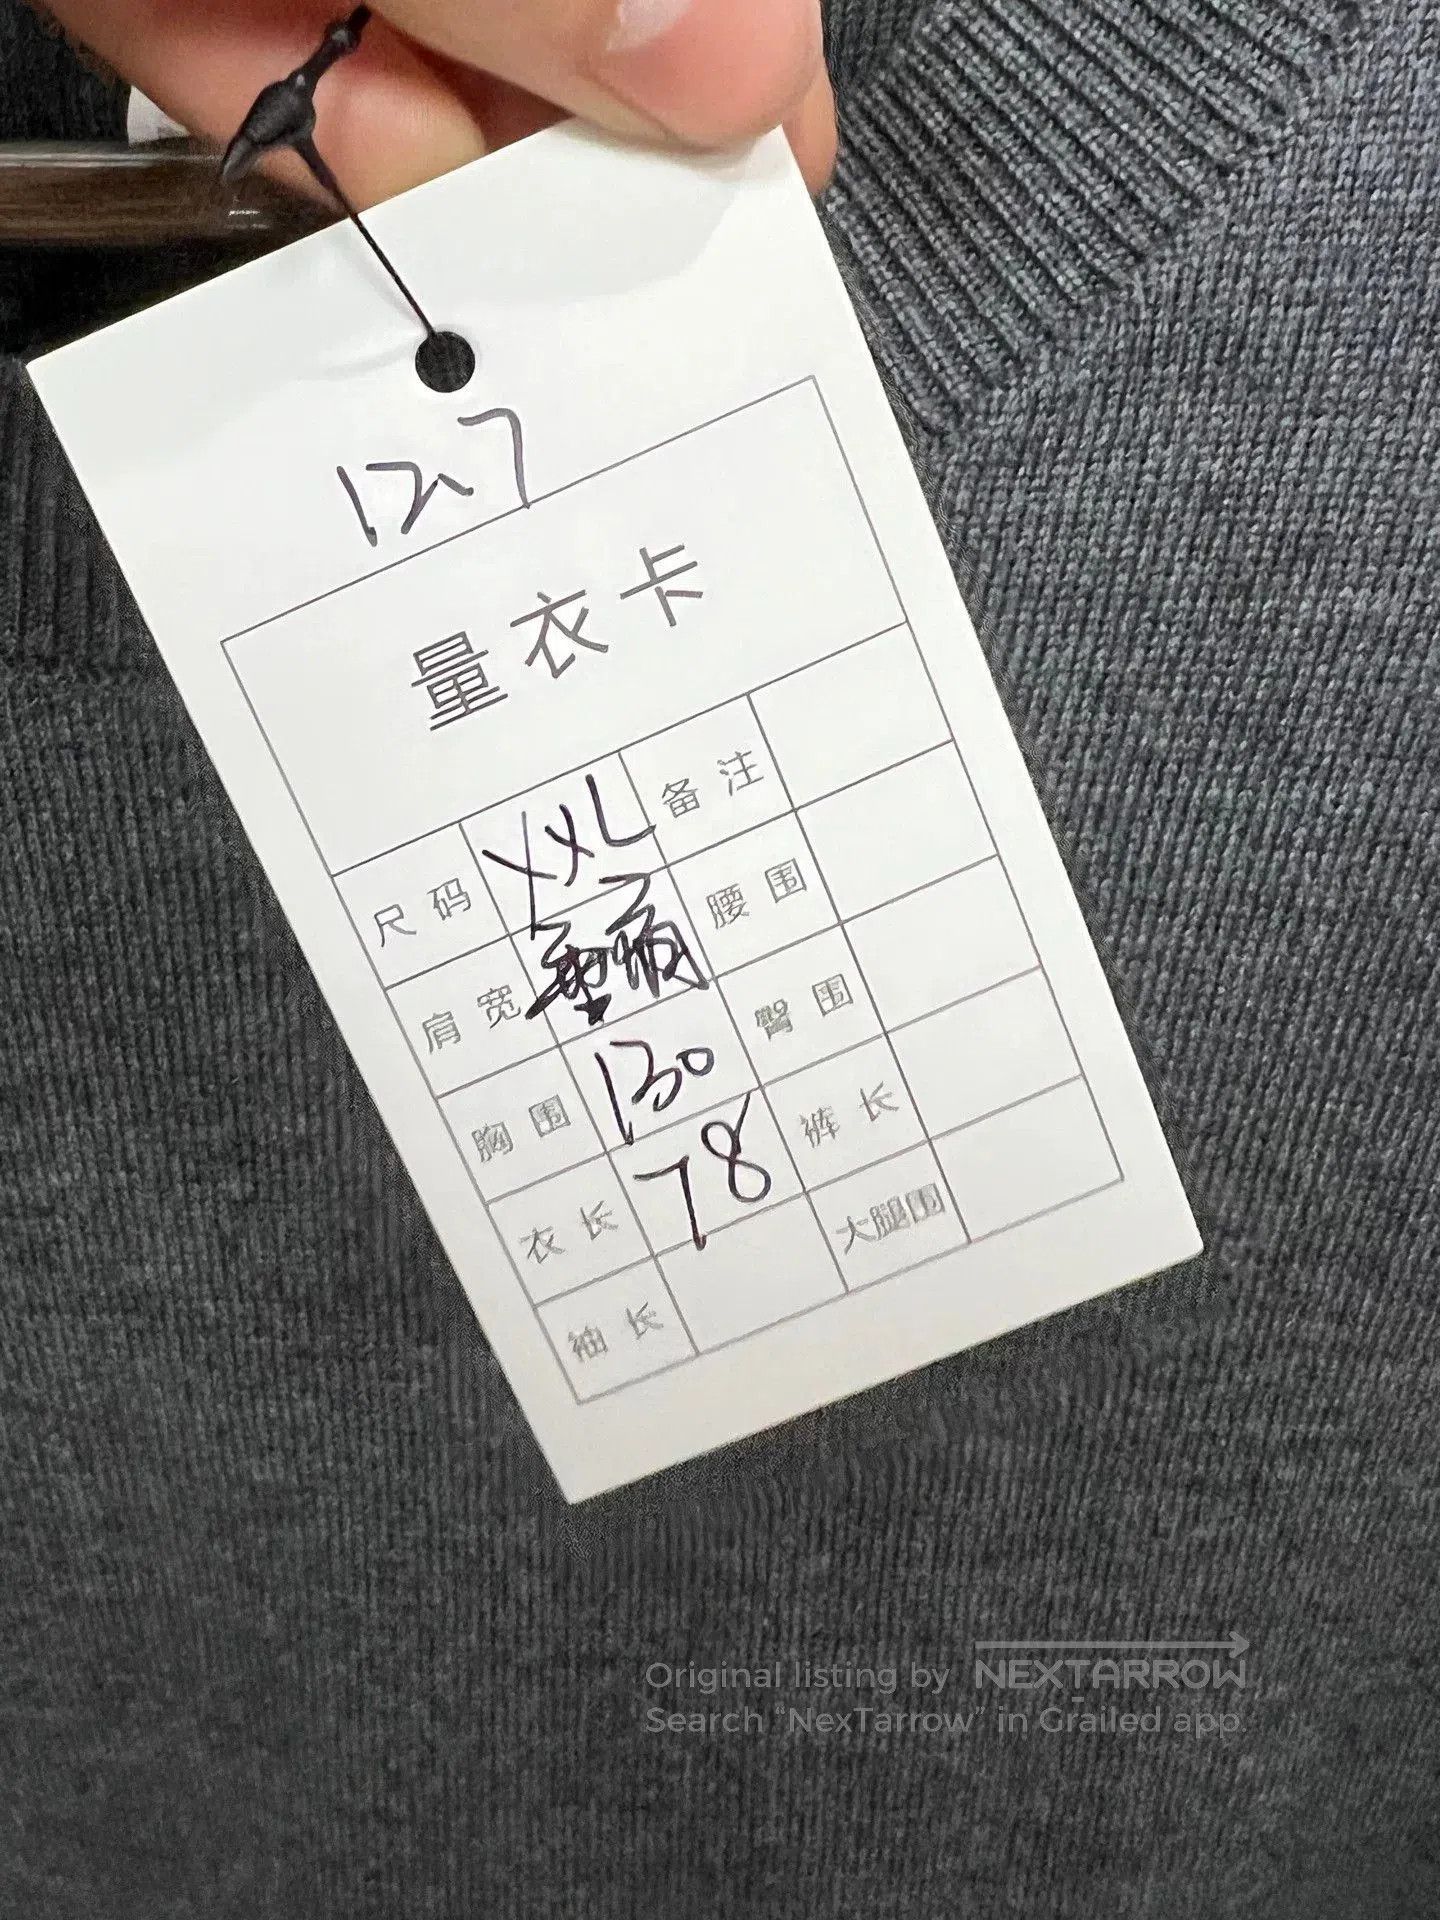 12.7
量衣卡
尺码 XXL 备注
肩宽 腰围
胸围 130 臀围
衣长 78 裤长
袖长 大腿围
Original listing by NEXTARROW
Search “NexTarrow” in Grailed app.